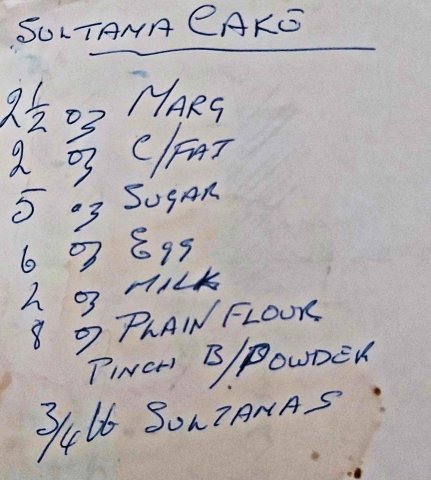 SULTANA CAKE
2 1/2 oz MARG
2 oz C/FAT
5 oz SUGAR
6 oz Egg
2 oz MILK
8 oz PLAIN FLOUR
PINCH B/POWDER
3/4 lb SULTANAS